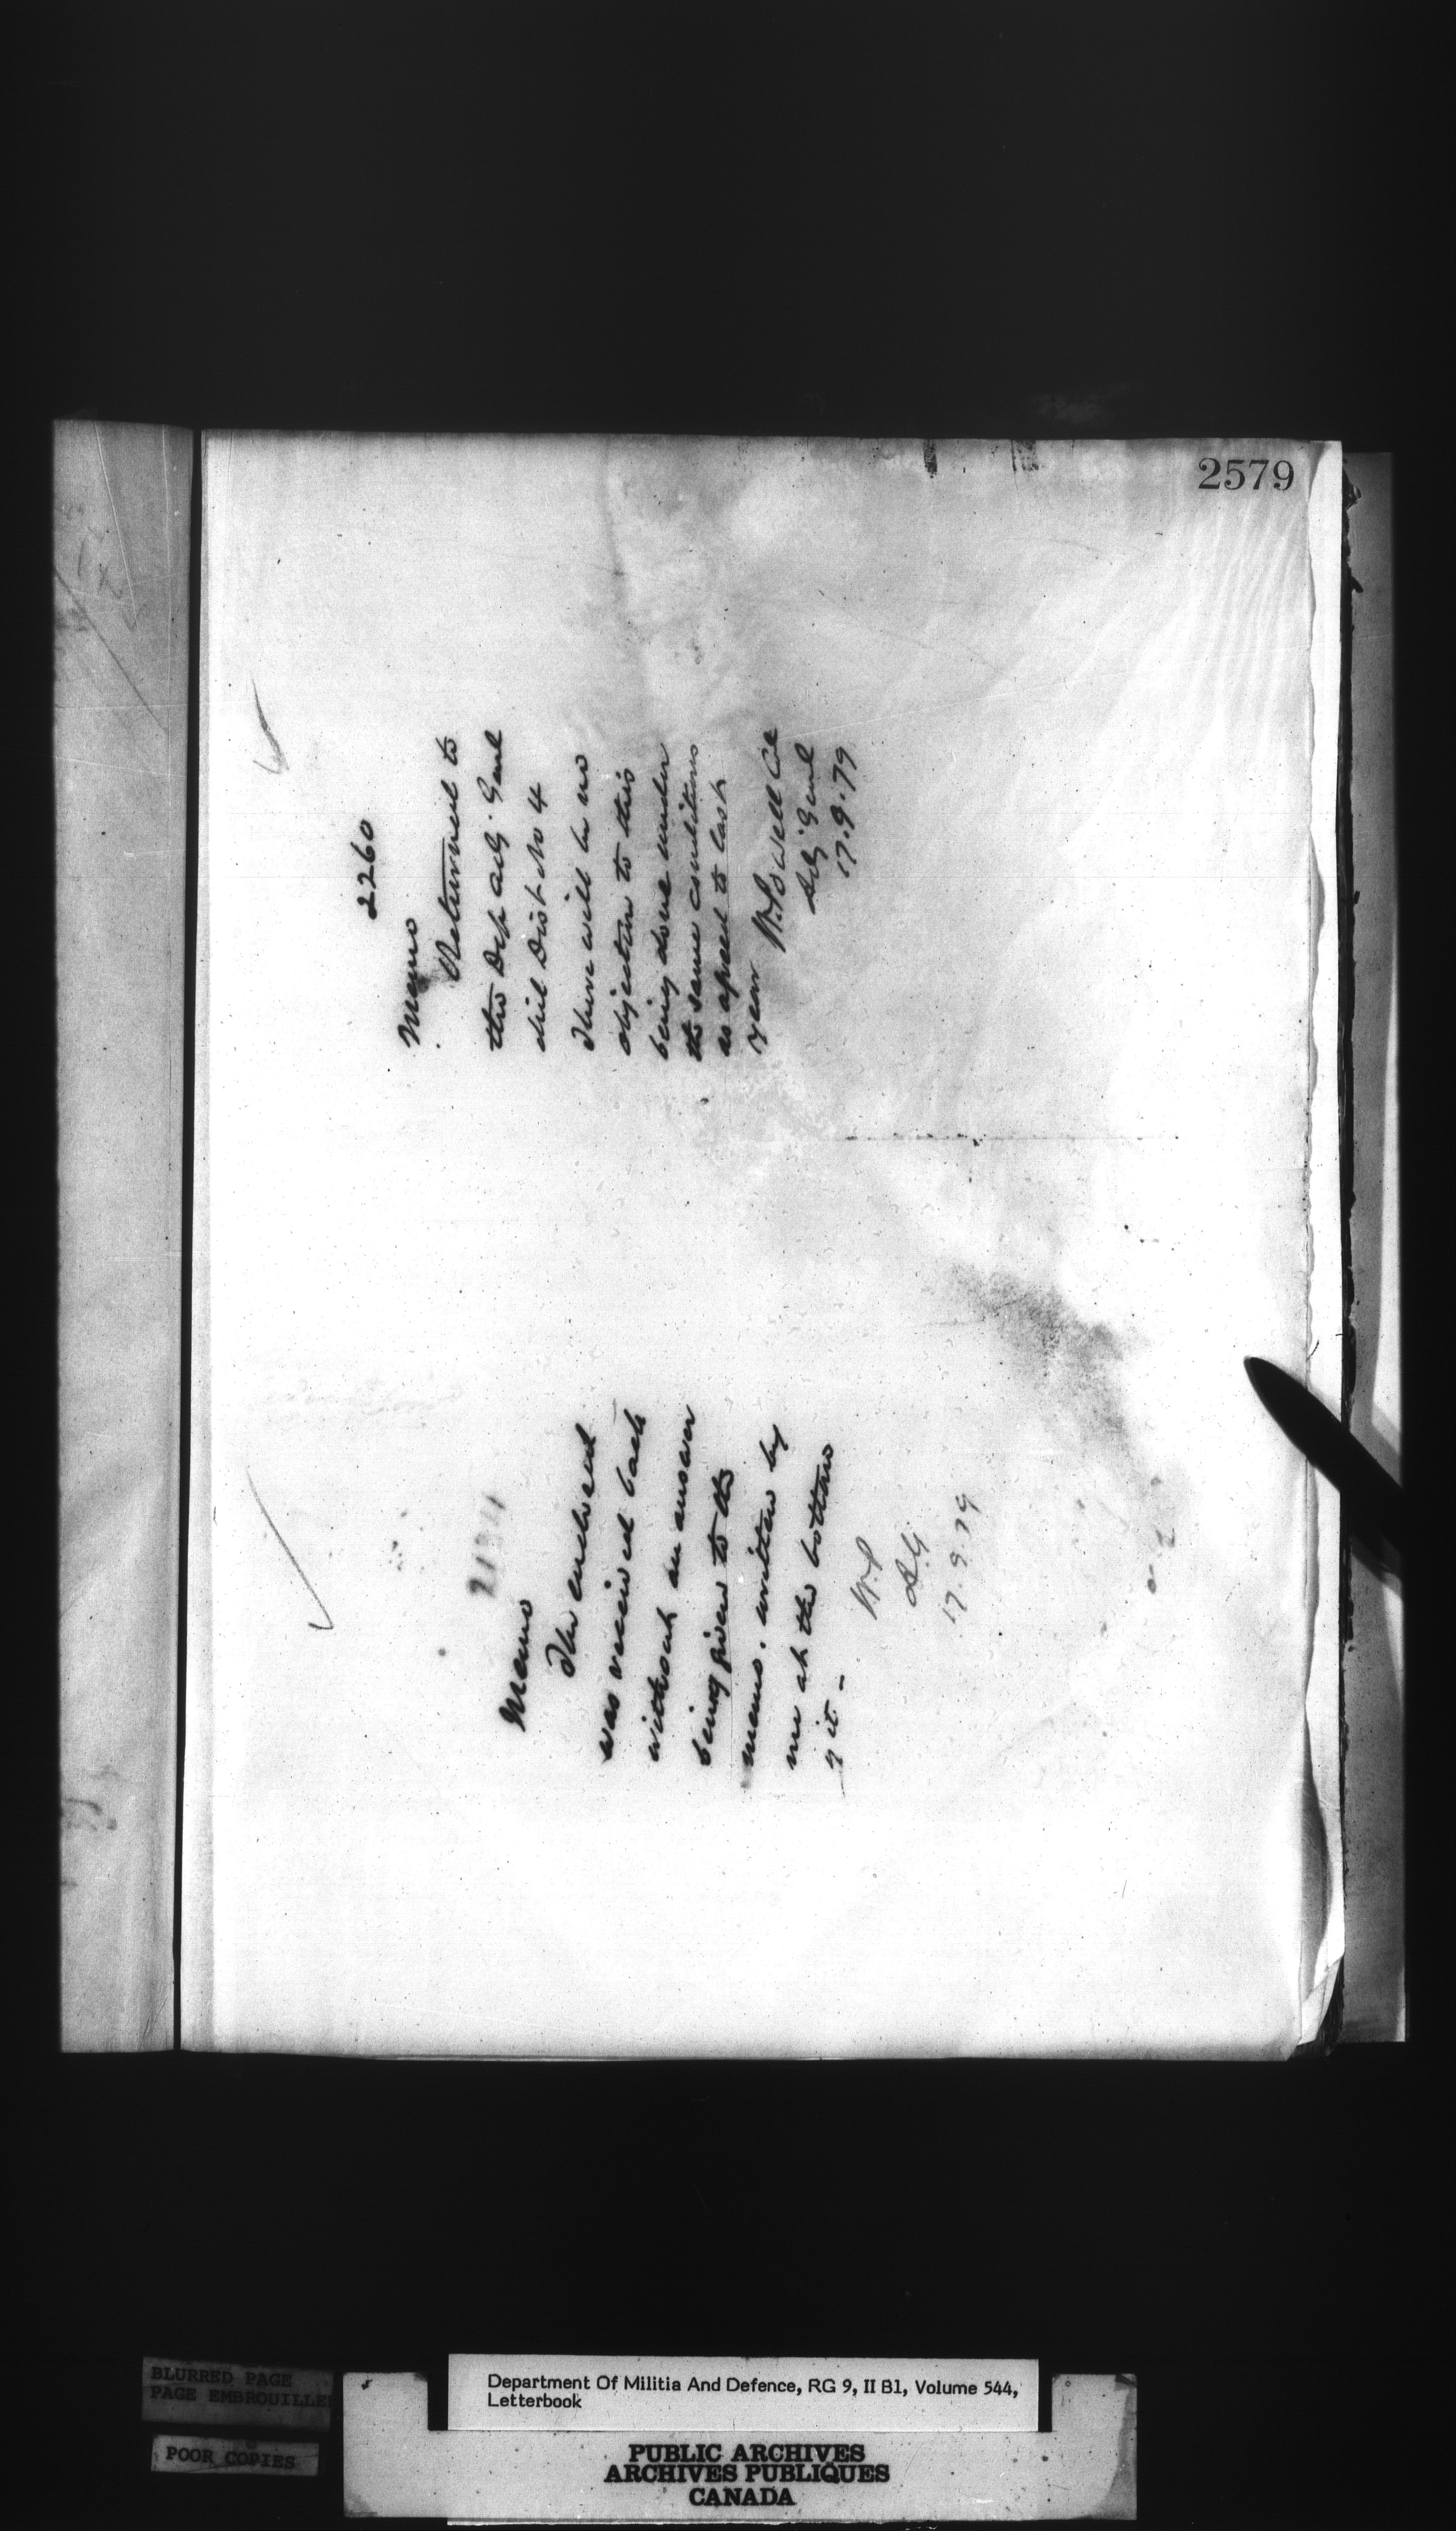 2579
2260
Memo
Returned to
the Dep Adj. Genl
Mil Dist No 4
There will be no
objection to this
being done under
the same conditions
as agreed to last
year
W. Powell Col
Adj. Genl
17.9.79
Memo
The enclosed
was received back
without an answer
being given to the
memo. written by
me at the bottom
of it -
W.P
A.G.
17.9.79
BLURRED PAGE
PAGE EMBROUILLEE
POOR COPIES
Department Of Militia And Defence, RG 9, II B1, Volume 544,
Letterbook
PUBLIC ARCHIVES
ARCHIVES PUBLIQUES
CANADA